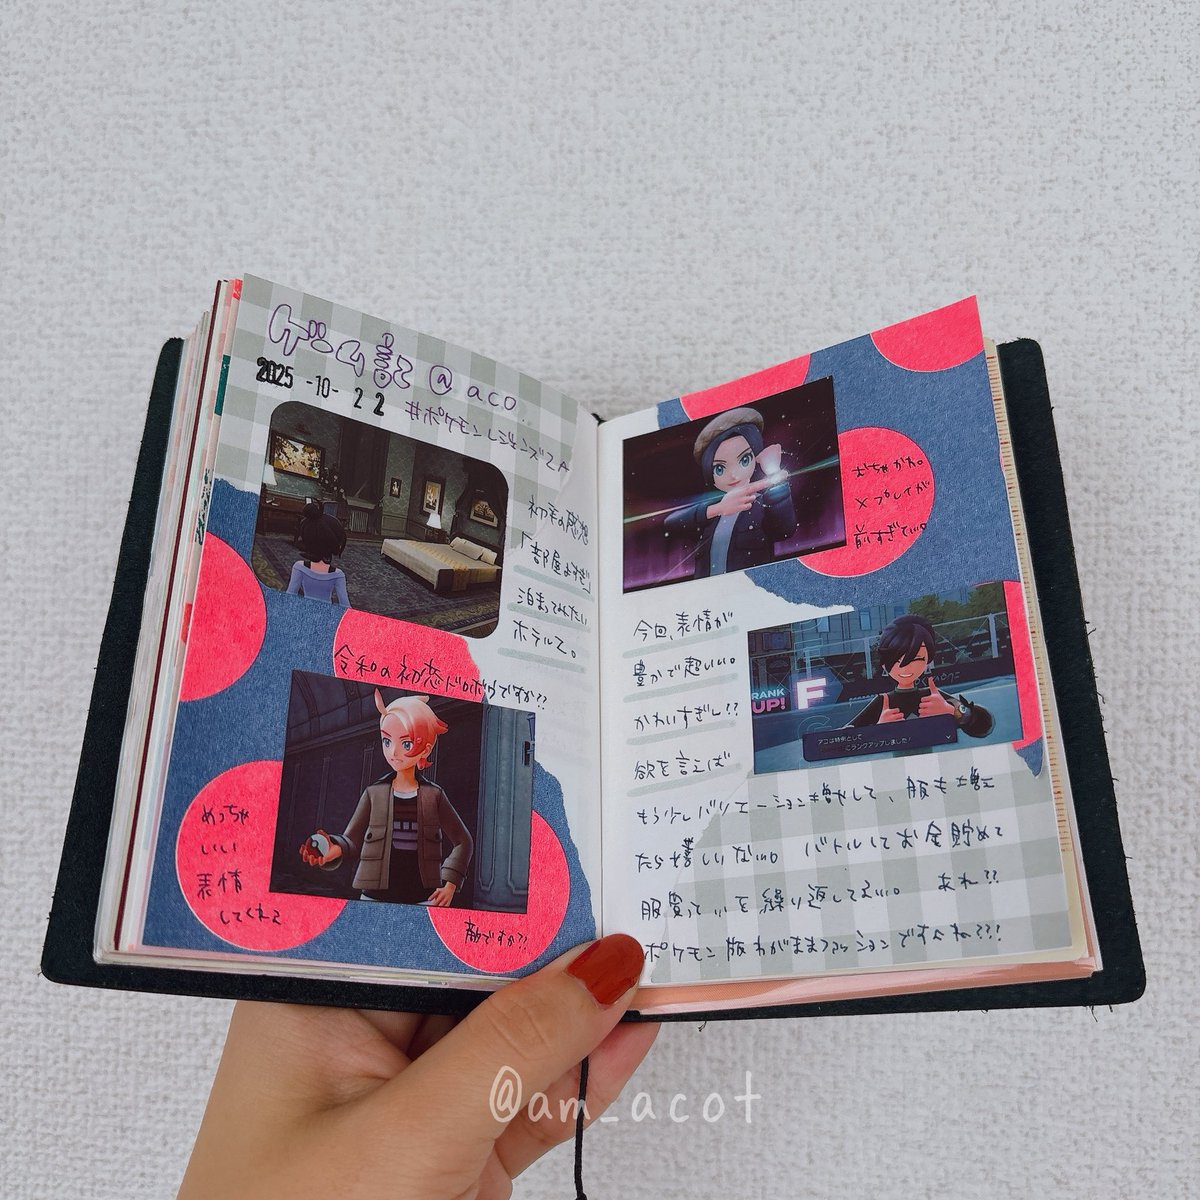 ゲーム記 @aco.
2025-10-22
#ポケモンレジェンズZA
初手の感想
「部屋よすぎ」
泊まってみたい
ホテルて。
令和の初恋ドロボウですか??
めっちゃ
いい
表情
してくれる
顔ですか?!
おちゃかわ。
メプレイが
良すぎてい。
今回、表情が
豊かで超いい。
かわいすぎん!?
欲を言えば
RANK UP! F
アコは特例として
にランクアップしました!
もう少しバリエーション増やして、服も増え
たら嬉しいない。 バトルしてお金貯めて
服買っていを繰り返してるい。 あれ??
ポケモン版わがままファッションですんね???!
@am_acot